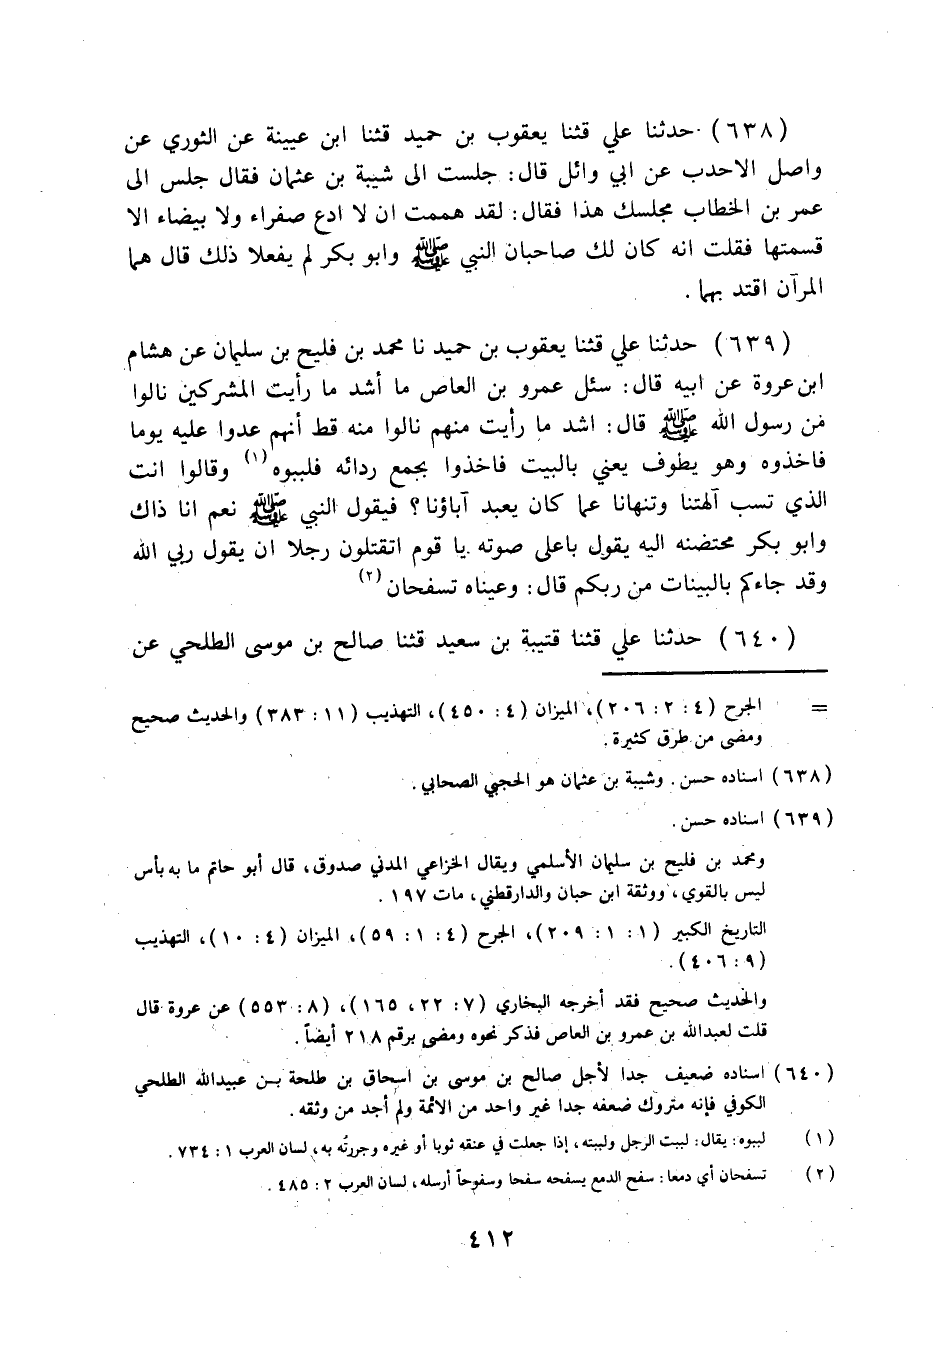 (٦٣٨) حدثنا علي قثنا يعقوب بن حميد قثنا ابن عيينة عن الثوري عن
واصل الاحدب عن ابي وائل قال: جلست الى شيبة بن عثمان فقال جلس الى
عمر بن الخطاب مجلسك هذا فقال: لقد هممت ان لا ادع صفراء ولا بيضاء الا
قسمتها فقلت انه كان لك صاحبان النبي ﷺ وابو بكر لم يفعلا ذلك قال هما
المرآن اقتد بهما.
(٦٣٩) حدثنا علي قثنا يعقوب بن حميد نا محمد بن فليح بن سليمان عن هشام
ابن عروة عن ابيه قال: سئل عمرو بن العاص ما أشد ما رأيت المشركين نالوا
من رسول الله ﷺ قال: اشد ما رأيت منهم نالوا منه قط أنهم عدوا عليه يوما
فاخذوه وهو يطوف يعني بالبيت فاخذوا بجمع ردائه فلببوه(١) وقالوا انت
الذي تسب آلهتنا وتنهانا عما كان يعبد آباؤنا؟ فيقول النبي ﷺ نعم انا ذاك
وابو بكر محتضنه اليه يقول باعلى صوته يا قوم اتقتلون رجلا ان يقول ربي الله
وقد جاءكم بالبينات من ربكم قال: وعيناه تسفحان(٢)
(٦٤٠) حدثنا علي قثنا قتيبة بن سعيد قثنا صالح بن موسى الطلحي عن
= الجرح (٤: ٢: ٢٠٦)، الميزان (٤: ٤٥٠)، التهذيب (١١: ٣٨٣) والحديث صحيح
ومضى من طرق كثيرة.
(٦٣٨) اسناده حسن. وشيبة بن عثمان هو الحجبي الصحابي.
(٦٣٩) اسناده حسن.
ومحمد بن فليح بن سليمان الأسلمي ويقال الخزاعي المدني صدوق، قال أبو حاتم ما به بأس
ليس بالقوي، ووثقة ابن حبان والدارقطني، مات ١٩٧.
التاريخ الكبير (١: ١: ٢٠٩)، الجرح (٤: ١: ٥٩)، الميزان (٤: ١٠)، التهذيب
(٩: ٤٠٦).
والحديث صحيح فقد أخرجه البخاري (٧: ٢٢، ١٦٥)، (٨: ٥٥٣) عن عروة قال
قلت لعبدالله بن عمرو بن العاص فذكر نحوه ومضى برقم ٢١٨ أيضاً.
(٦٤٠) اسناده ضعيف جدا لأجل صالح بن موسى بن اسحاق بن طلحة بن عبيدالله الطلحي
الكوفي فإنه متروك ضعفه جدا غير واحد من الائمة ولم أجد من وثقه.
(١) لببوه: يقال: لببت الرجل ولببته، إذا جعلت في عنقه ثوبا أو غيره وجررتُه به، لسان العرب ١: ٧٣٤.
(٢) تسفحان أي دمعا: سفح الدمع يسفحه سفحا وسفوحاً أرسله، لسان العرب ٢: ٤٨٥.
٤١٢